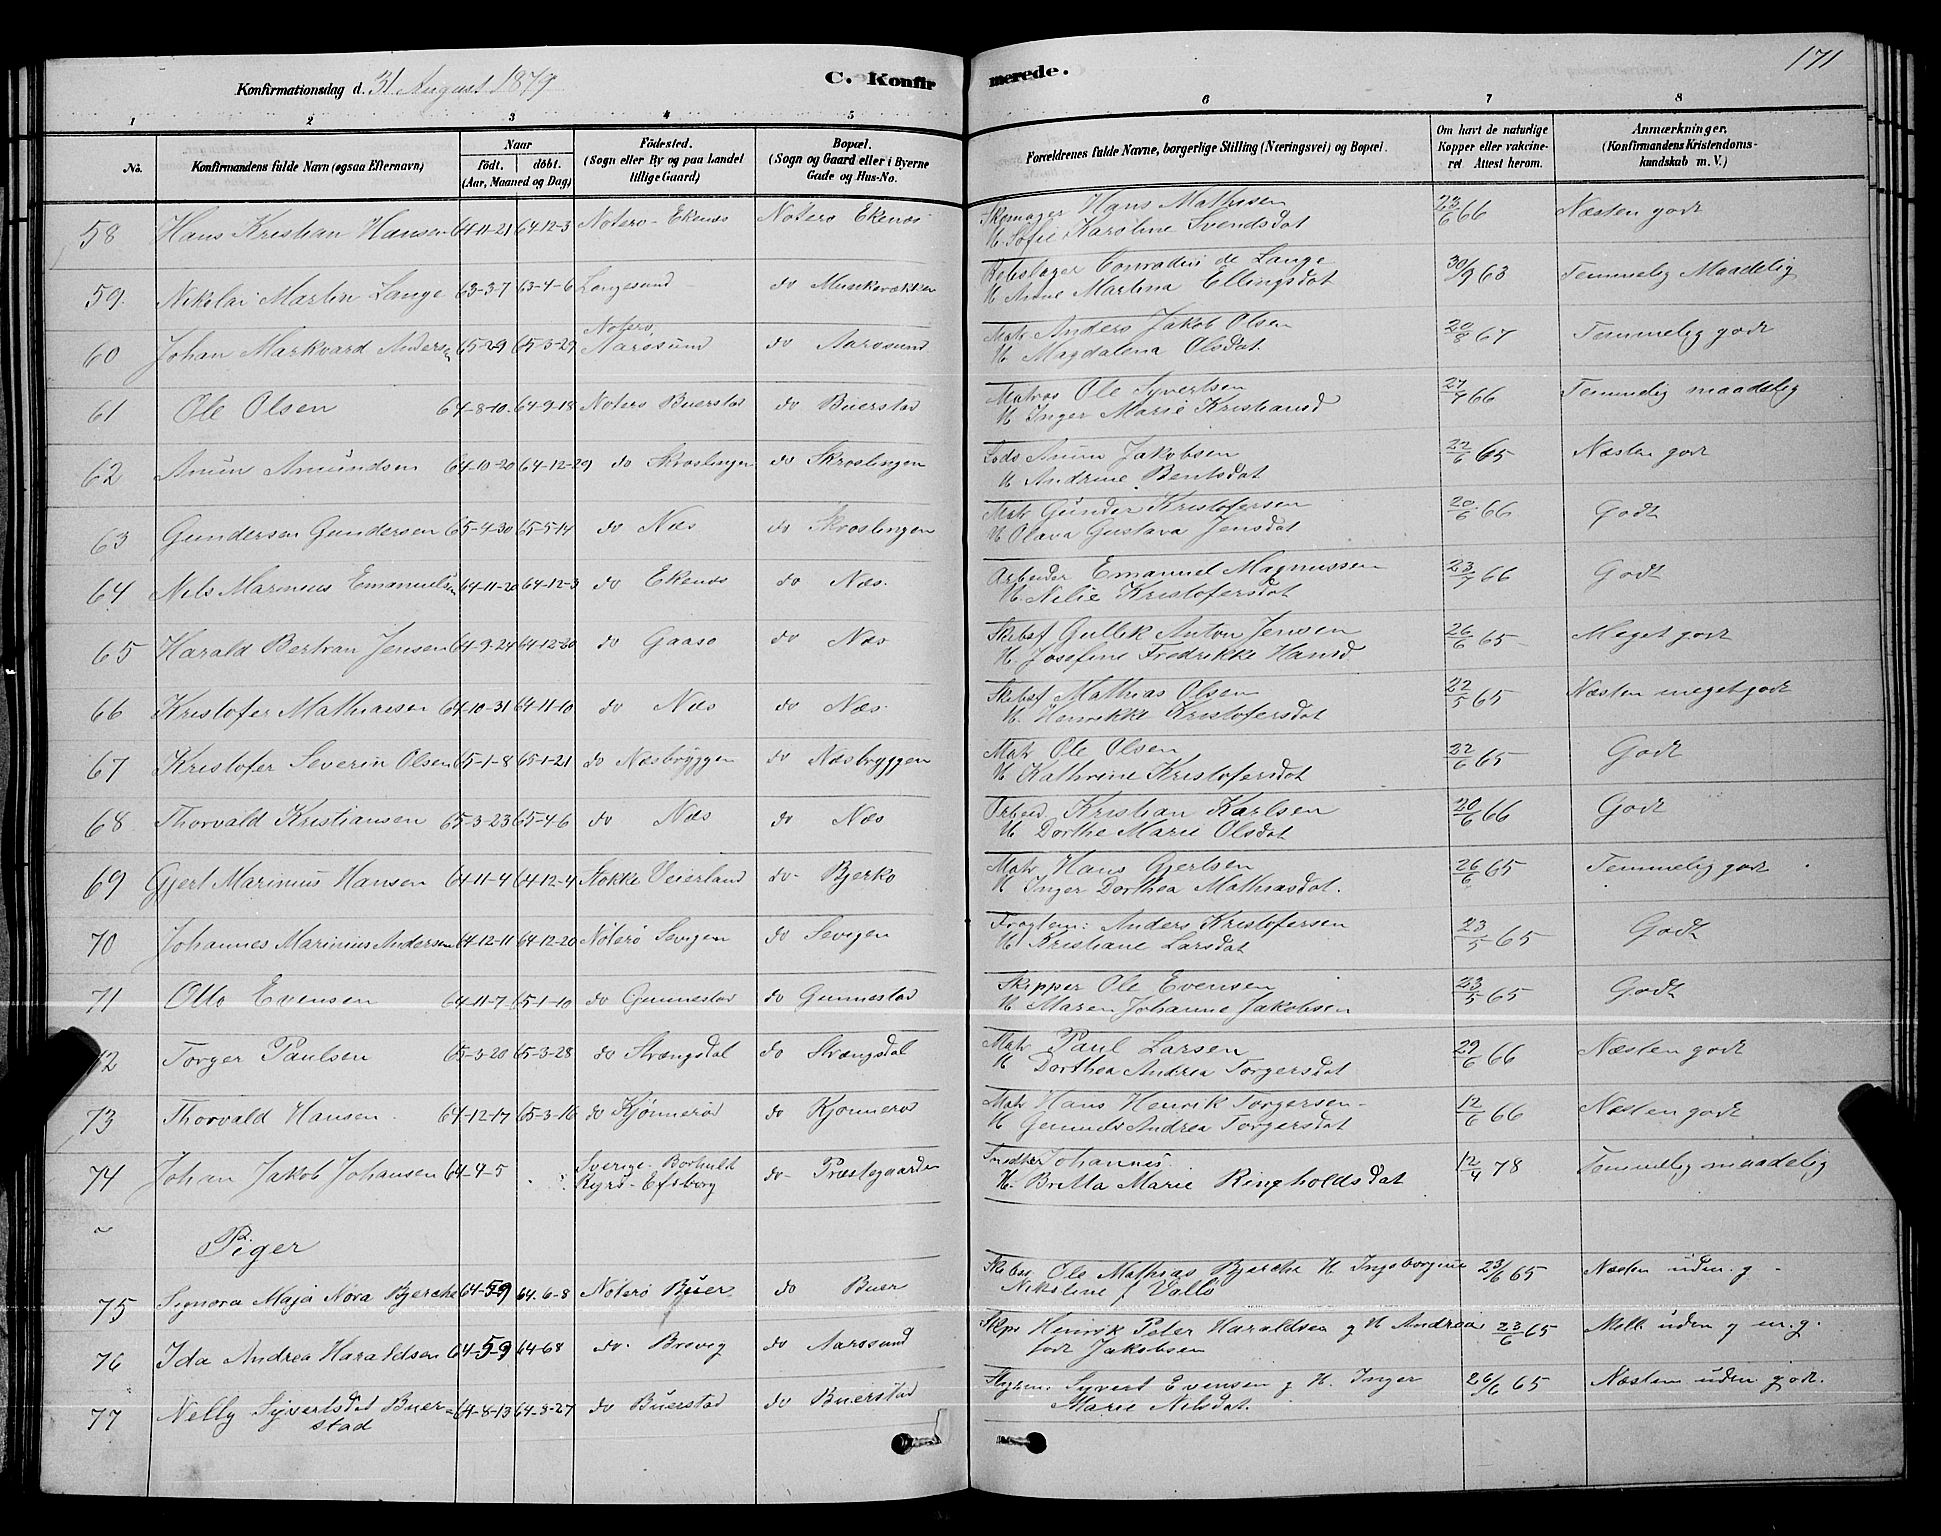 171
Konfirmationsdag d. 31 August 1879
C. Konfirmerede.
1 2 3 4 5 6 7 8
No. Konfirmandens fulde Navn (ogsaa Efternavn) Naar født. døbt. (Aar, Maaned og Dag) Fødested. (Sogn eller By og paa Landet tillige Gaard) Bopæl. (Sogn og Gaard eller i Byerne Gade og Hus-No. Forældrenes fulde Navne, borgerlige Stilling (Næringsvei) og Bopæl. Om havt de naturlige Kopper eller vakcineret. Attest herom. Anmærkninger. (Konfirmandens Kristendomskundskab m. V.)
58 Hans Kristian Hansen 64-11-21 64-12-3 Noterø-Ekenæs Noterø Ekenæs Skomager Hans Mathisen 23/6 66 Næsten godt
H. Sofie Karoline Svendsdat
59. Nikolai Martin Lange 63-3-7 63-4-6 Langesund do Rebslager Conradus de Lange 30/9 63 Temmelig Maadelig
H. Anne Martina Ellingsdat
60 Johan Markvard Anders 65-2-9 65-3-29 Noterø, Aarosund do Aarosund Matr Anders Jakob Olsen 20/8 67 Temmelig godt
H Magdalena Olsdat.
61 Ole Olsen 64-8-10 64-9-18 Noterø Buerstad do Buerstad Matros Ole Syvertsen 66 Temmelig maadelig
H Inger Marie Kristiansd
62 Anun Amundsen 64-10-20 64-12-29 do Skroslingen do Skroslingen Lods Anun Jakobsen 22/6 65 Næsten godt
H Andrine Bentsdat
63 Gundersen Gundersen 65-4-30 65-5-14 do Næs do Skroslingen Matr Gunder Kristofersen 20/6 66 Godt
H Olava Gustava Jensdat
64 Nils Marinius Emanuelsen 64-11-20 64-12-3 do Ekenæs do Næs. Arbeider Emanuel Magnussen 23/7 66 Godt
H. Nilie Kristofersdat
65 Harald Bertran Jensen 64-9-24 64-12-20 do Gaasø do Næs Skibsf Gullik Anton Jensen 26/6 65 Meget godt
H. Josefine Fredrikke Hansd
66 Kristofer Mathiasen 64-10-31 64-11-10 do Næs do Næs. Skibsf Mathias Olsen 22/5 65 Næsten meget godt
H. Henrikke Kristofersdat
67 Kristofer Severin Olsen 65-1-8 65-1-21 do Næsbryggen do Næsbryggen Matr Ole Olsen 22/6 65 Godt
H Kathrine Kristofersdat
68 Thorvald Kristiansen 65-3-23 65-4-6 do Næs do Næs Arbeid Kristian Karlsen 20/6 66 Godt
H Dorthe Marie Olsdat
69 Gjert Marinius Hansen 64-11-4 64-12-4 Stokke Veierland do- Bjerkø Matr Hans Gjertsen 26/6 65 Temmelig godt
H Inger Dorthea Mathiasdat.
70 Johannes Marinius Andersen 64-12-11 64-12-20 Noterø Sevigen do Sevigen Anders Kristofersen 23/5 65 Godt
H Kristiane Larsdat
71 Otto Evensen 64-11-7 65-1-10 do Gunnestad do Gunnestad Skipper Ole Evensen 23/5 65 Godt
H Maren Johanne Jakobsen
72 Torger Paulsen 65-3-20 65-3-28 do Strængsdal do Strængsdal Matr Paul Larsen 29/6 66 Næsten godt
H Dorthea Andrea Torgersdat
73 Thorvald Hansen 64-12-17 65-3-16 do Kjønnerød do Kjonnerod Matr Hans Henrik Torgersen 12/6 66 Næsten godt
H Andrea Torgersdat
74 Johan Jakob Johansen 64-4-5 Sverige- do- Præstegaarden Johannes 12/4 78 Temmelig maadelig
H. Britta Marie Ringholdsdat
Piger
75 Signora Maja Nora Bjerche 64-5-9 64-6-8 Noterø Buer do Buer Ole Mathias Bjerche H Ingeborgine 23/6 65 Næsten uden g
Nikoline f Vallø
76 Ida Andrea Haraldsen 64-5-9 64-6-8 do Brovig do Aarosund Skpr Henrik Peter Haraldsen g H Andrea 23/6 65 Mell uden g m.g.
født Jakobsen
77 Nelly Syvertsdat Buer- 64-8-13 64-8-27 do Buerstad do Buerstad Syvert Evensen g H. Inger 26/6 65 Næsten uden godt.
stad Marie Nilsdat.